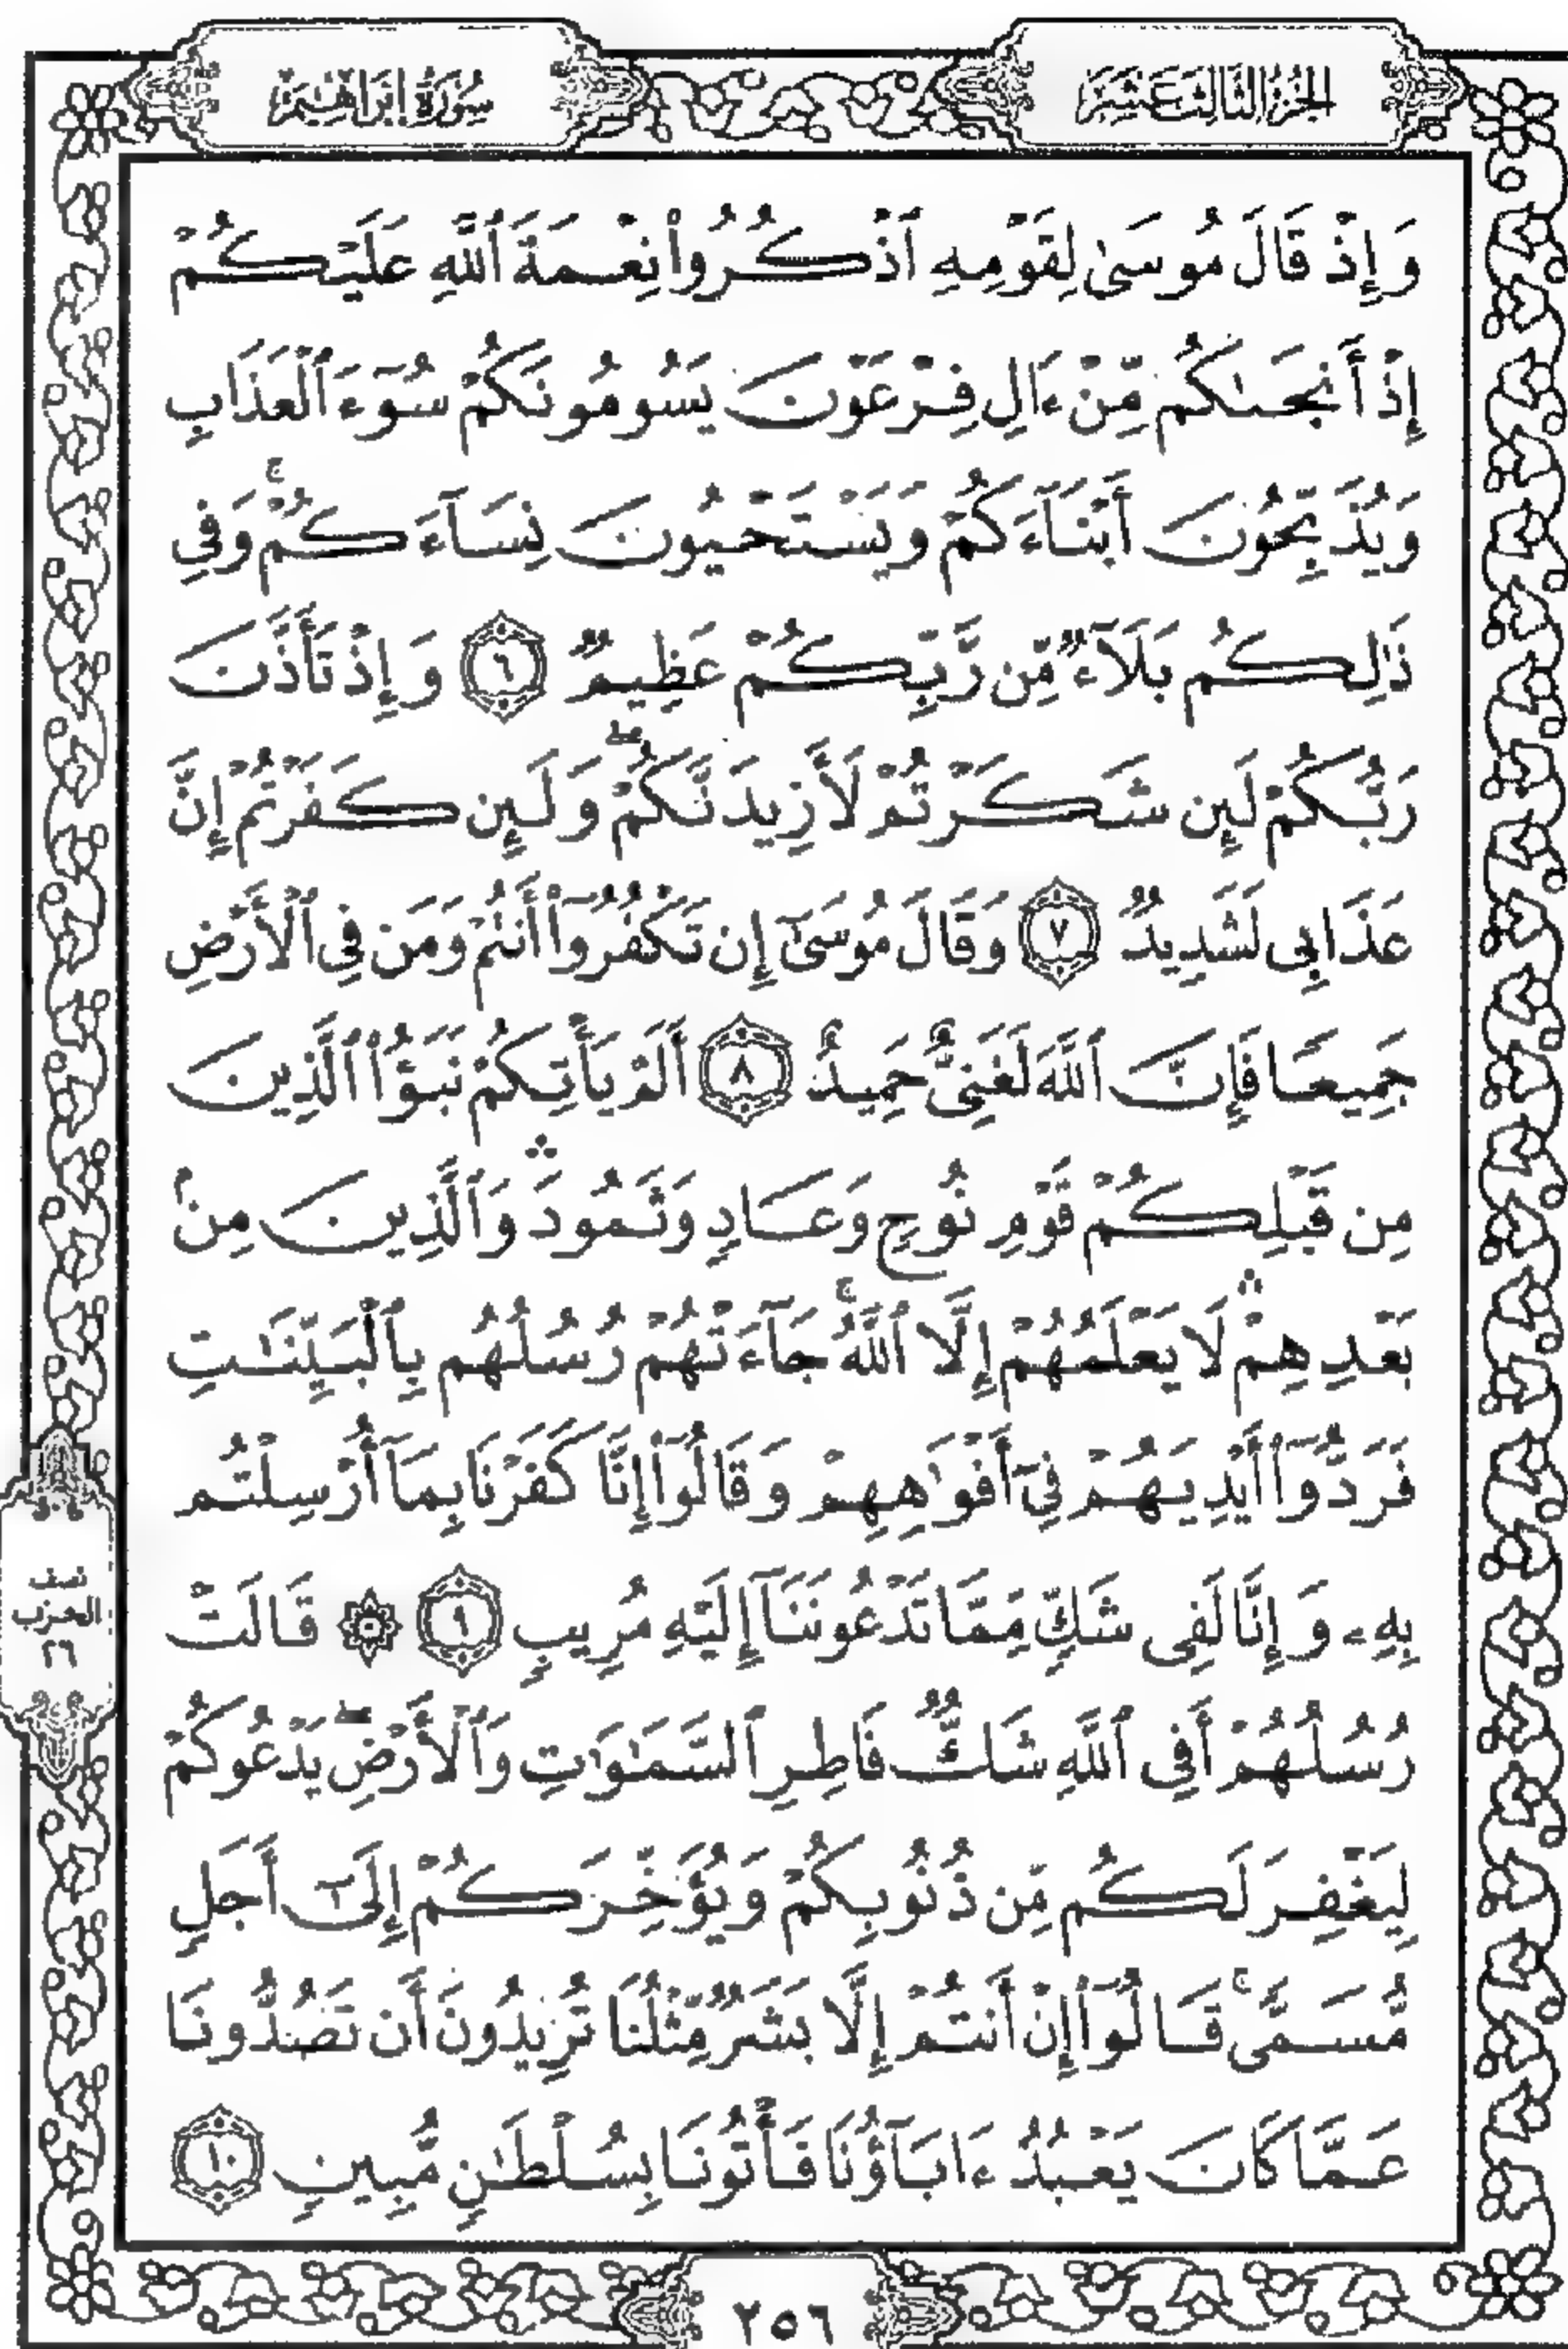 الجُزْءُ الثَّالِثَ عَشَرَ
سُورَةُ إِبْرَاهِيمَ
وَإِذْ قَالَ مُوسَىٰ لِقَوْمِهِ ٱذْكُرُوا۟ نِعْمَةَ ٱللَّهِ عَلَيْكُمْ
إِذْ أَنجَىٰكُم مِّنْ ءَالِ فِرْعَوْنَ يَسُومُونَكُمْ سُوٓءَ ٱلْعَذَابِ
وَيُذَبِّحُونَ أَبْنَآءَكُمْ وَيَسْتَحْيُونَ نِسَآءَكُمْ ۚ وَفِى
ذَٰلِكُم بَلَآءٌ مِّن رَّبِّكُمْ عَظِيمٌ ٦ وَإِذْ تَأَذَّنَ
رَبُّكُمْ لَئِن شَكَرْتُمْ لَأَزِيدَنَّكُمْ ۖ وَلَئِن كَفَرْتُمْ إِنَّ
عَذَابِى لَشَدِيدٌ ٧ وَقَالَ مُوسَىٰٓ إِن تَكْفُرُوٓا۟ أَنتُمْ وَمَن فِى ٱلْأَرْضِ
جَمِيعًا فَإِنَّ ٱللَّهَ لَغَنِىٌّ حَمِيدٌ ٨ أَلَمْ يَأْتِكُمْ نَبَؤُا۟ ٱلَّذِينَ
مِن قَبْلِكُمْ قَوْمِ نُوحٍ وَعَادٍ وَثَمُودَ ۛ وَٱلَّذِينَ مِنۢ
بَعْدِهِمْ ۛ لَا يَعْلَمُهُمْ إِلَّا ٱللَّهُ ۚ جَآءَتْهُمْ رُسُلُهُم بِٱلْبَيِّنَٰتِ
فَرَدُّوٓا۟ أَيْدِيَهُمْ فِىٓ أَفْوَٰهِهِمْ وَقَالُوٓا۟ إِنَّا كَفَرْنَا بِمَآ أُرْسِلْتُم
بِهِۦ وَإِنَّا لَفِى شَكٍّ مِّمَّا تَدْعُونَنَآ إِلَيْهِ مُرِيبٍ ٩ ۞ قَالَتْ
رُسُلُهُمْ أَفِى ٱللَّهِ شَكٌّ فَاطِرِ ٱلسَّمَٰوَٰتِ وَٱلْأَرْضِ ۖ يَدْعُوكُمْ
لِيَغْفِرَ لَكُم مِّن ذُنُوبِكُمْ وَيُؤَخِّرَكُمْ إِلَىٰٓ أَجَلٍ
مُّسَمًّى ۚ قَالُوٓا۟ إِنْ أَنتُمْ إِلَّا بَشَرٌ مِّثْلُنَا تُرِيدُونَ أَن تَصُدُّونَا
عَمَّا كَانَ يَعْبُدُ ءَابَآؤُنَا فَأْتُونَا بِسُلْطَٰنٍ مُّبِينٍ ١٠
نصف
الحزب
٢٦
٢٥٦